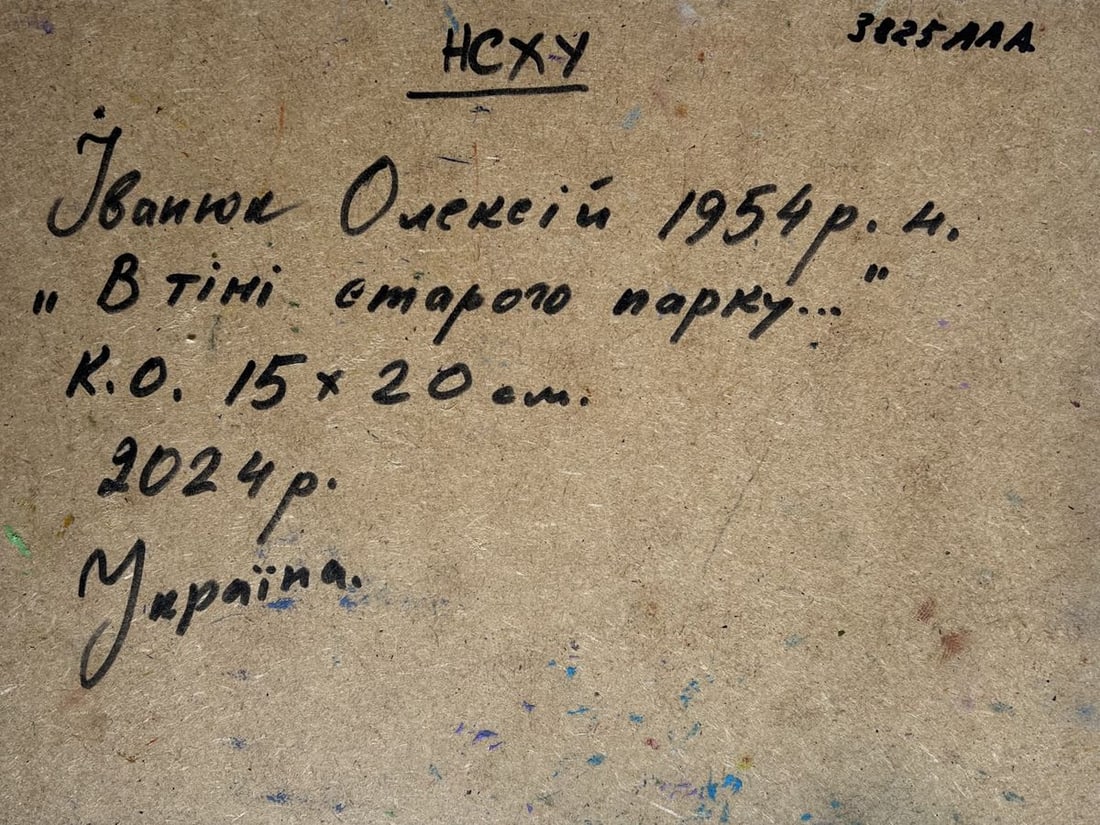 НСХУ
3825ЛЛА
Іванюк Олексій 1954 р. н.
„ В тіні старого парку... "
К.О. 15 x 20 см.
2024 р.
Україна.